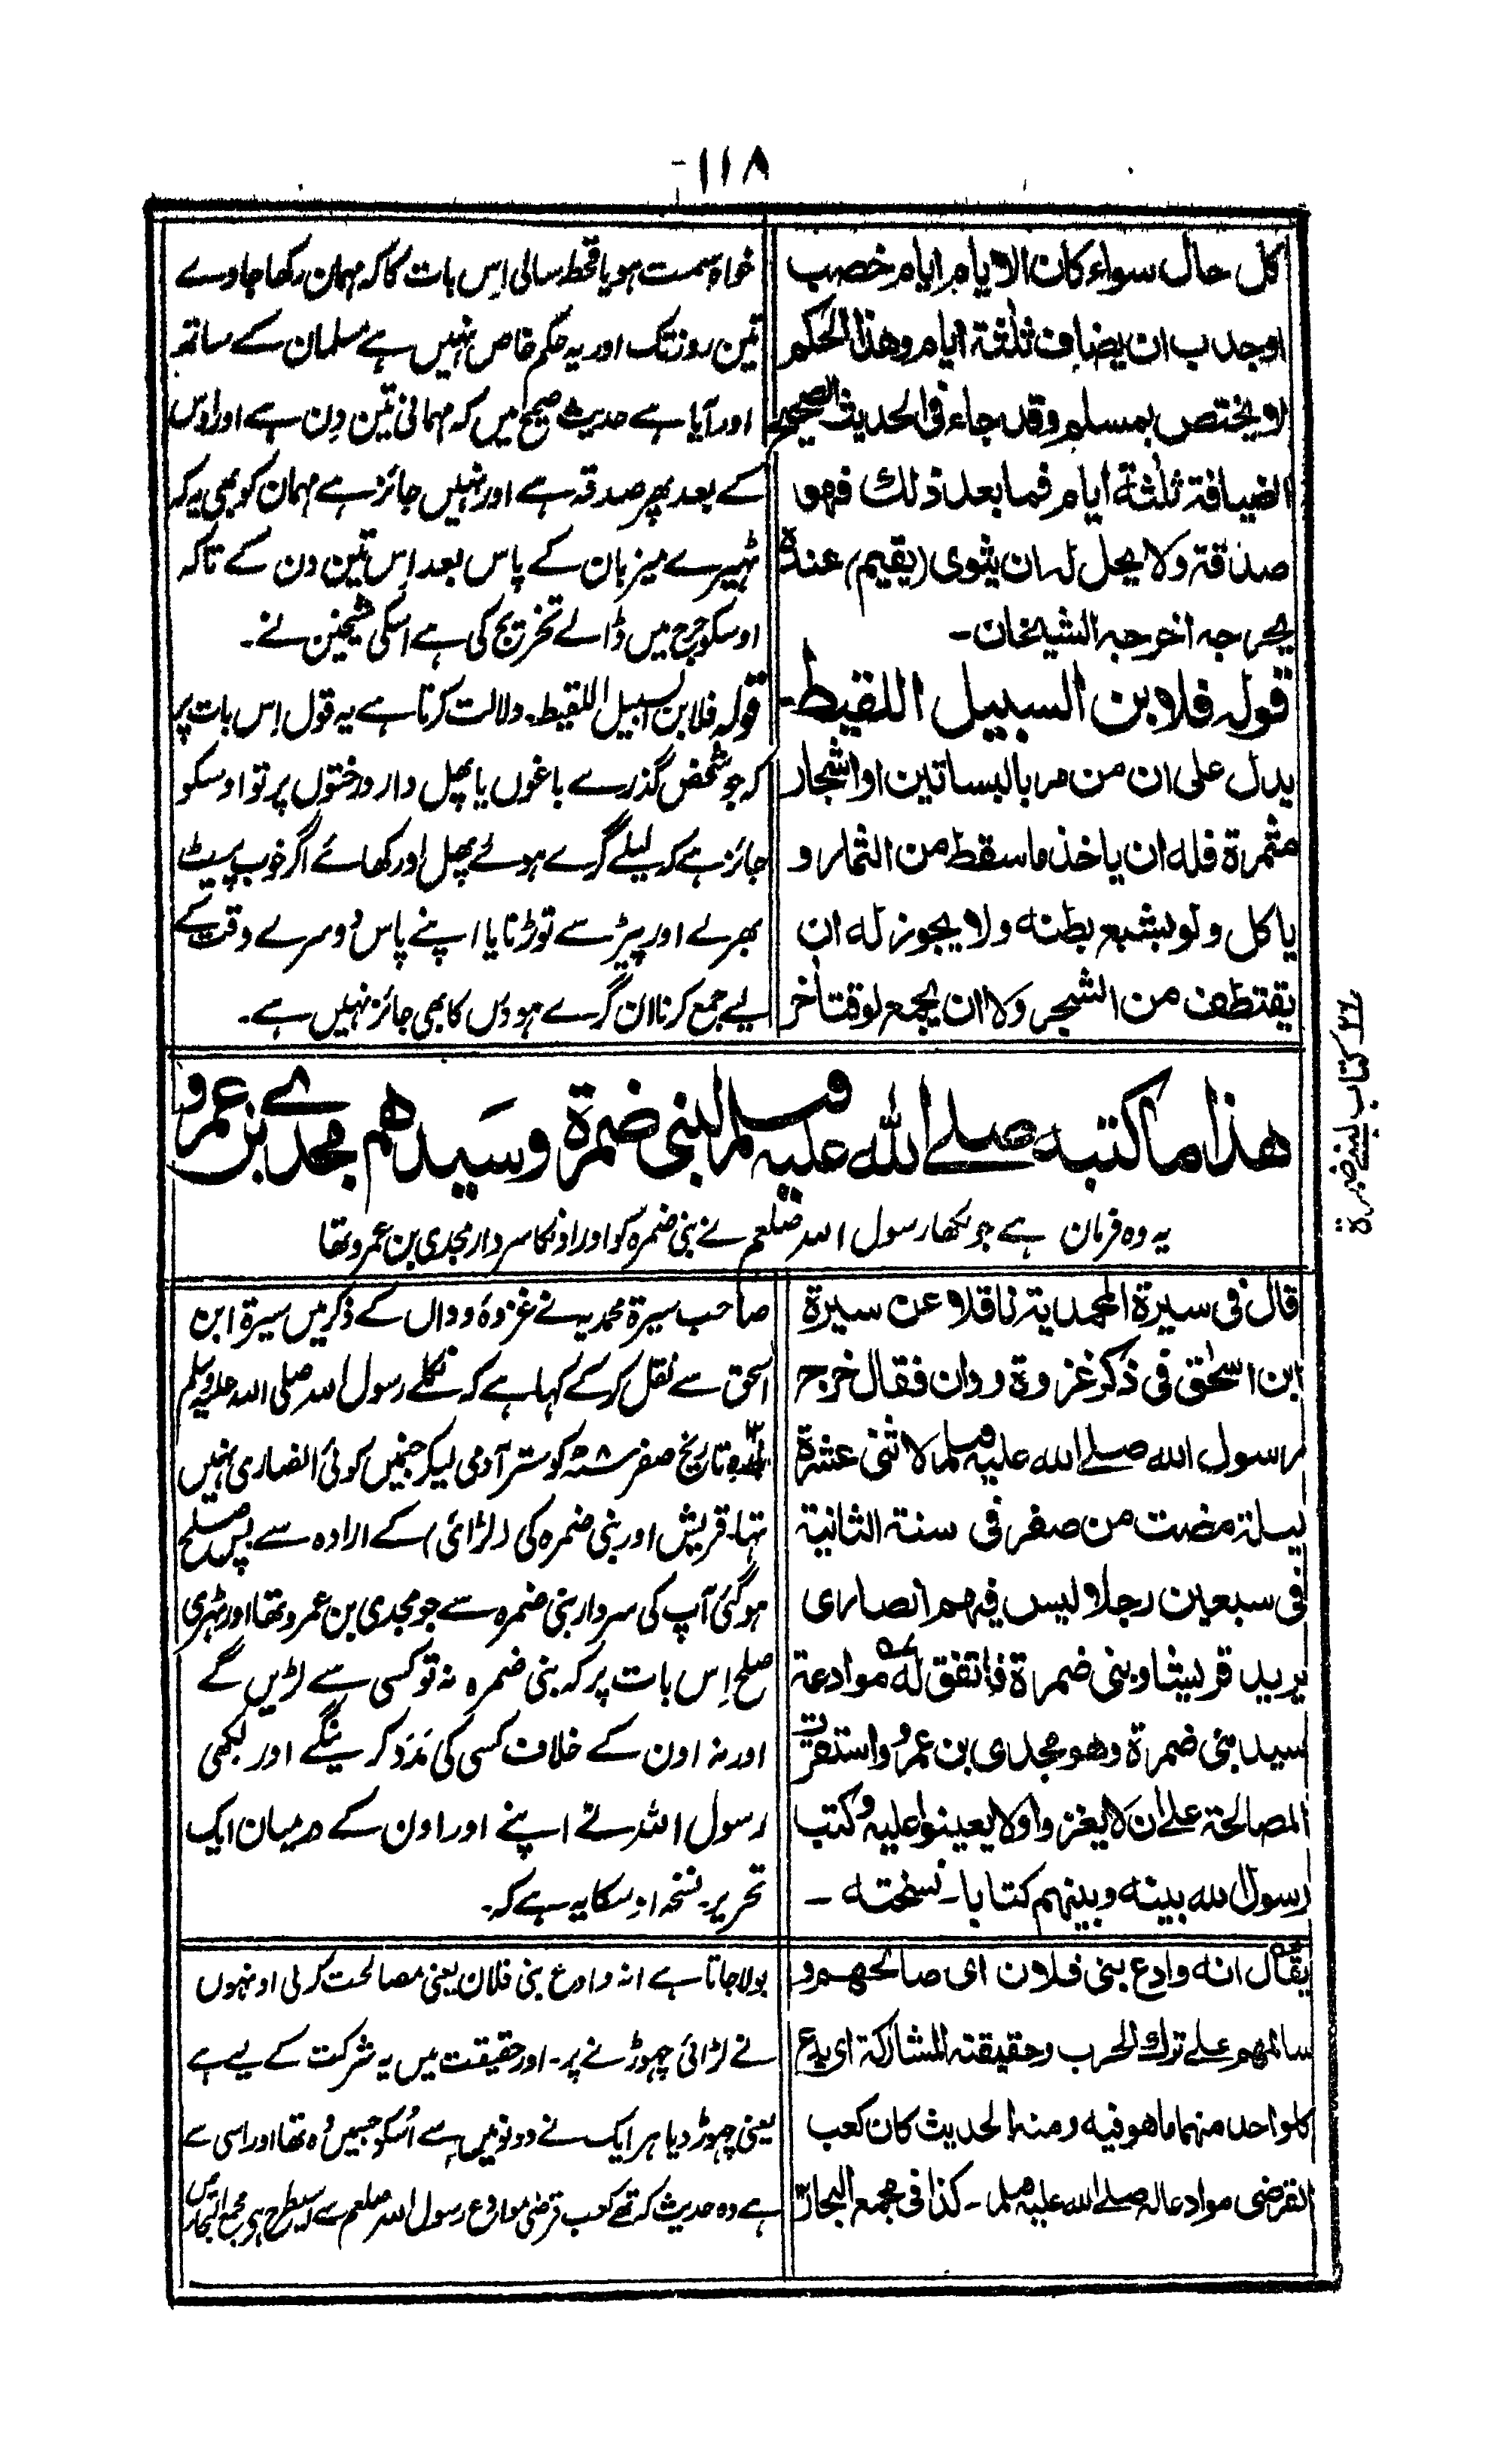 ۱۱۸-
كل حال سواء كان الايام ايام خصب
اوجدب ان يضاف ثلثة ايام وهذا الحكم
لا يختص بمسلم وقد جاء فى الحديث الصحيح
الضيافة ثلثة ايام فما بعد ذلك فهو
صدقة ولا يحل له ان يثوى (يقيم) عنده
يحرجه اخرجه الشيخان-
قوله فلابن السبيل اللقيط-
يدل على ان من مر بالبساتين او اشجار
مثمرة فله ان ياخذ ما سقط من الثمار و
ياكل ولو بشبع بطنه ولا يجوز له ان
يقتطف من الشجر ولا ان يجمع لوقت اخر
خواہ سمت ہو یا قحط سالی اِس بات کا کہ مہمان رکھا جاوے
تین روز تک اور یہ حکم خاص نہیں ہے مسلمان کے ساتھ
اور آیا ہے حدیث صحیح میں کہ مہمانی تین دِن ہے اور اوس
کے بعد پھر صدقہ ہے اور نہیں جائز ہے مہمان کو بھی یہ کہ
ٹہیرے میزبان کے پاس بعد اِس تین دن کے تاکہ
اوسکو حرج میں ڈالے تخریج کی ہے اسکی شیخین نے۔
قولہ فلابن السبیل اللقیط۔ دلالت کرتا ہے یہ قول اِس بات پر
کہ جو شخص گذرے باغوں یا پھل دار درختوں پر تو اوسکو
جائز ہے کہ لیلے گرے ہوئے پھل اور کھائے اگر خوب پیٹ
بھرلے اور پیڑ سے توڑنا یا اپنے پاس دوسرے وقت کے
لیے جمع کرنا ان گرے ہوؤں کا بھی جائز نہیں ہے۔
هذا ما كتبه صلے الله عليه وسلم لبنى ضمرة وسيدهم مجدے بن عمرو
یہ وہ فرمان ہے جو لکھا رسول اللہ صلعم نے بنی ضمرہ کو اور اونکا سردار مجدی بن عمرو تھا
كتاب لبنے ضمرة
قال فى سيرة المحمدية ناقلا عن سيرة
ابن اسحٰق فى ذكر غزوة ودان فقال خرج
رسول الله صلے الله عليه وسلم لاثنى عشرة
ليلة مضت من صفر فى سنة الثانية
فى سبعين رجلا ليس فيهم انصارى
يريد قريشا وبنى ضمرة فاتفق له موادعة
سيد بنى ضمرة وهو مجدى بن عمرو واستقرت
المصالحة على ان لا يغزوا ولا يعينوا عليه وكتب
رسول الله بينه وبينهم كتابا- نسخته -
صاحب سیرۃ محمدیہ نے غزوۂ ودان کے ذکر میں سیرۃ ابن
اسحق سے نقل کر کے کہا ہے کہ نکلے رسول اللہ صلی اللہ علیہ وسلم
تاریخ صفر کو ستر آدمی لیکر جنمیں کوئی انصاری نہیں
تہا۔ قریش اور بنی ضمرہ کی (لڑائی) کے ارادہ سے پس صلح
ہوگئی آپ کی سردار بنی ضمرہ سے جو مجدی بن عمرو تھا اور ٹہری
صلح اِس بات پر کہ بنی ضمرہ نہ تو کسی سے لڑیں گے
اور نہ اون کے خلاف کسی کی مَدَد کرینگے اور لکھی
رسول اللہ نے اپنے اور اون کے درمیان ایک
تحریر۔ نسخہ اوسکا یہ ہے کہ۔
يقال انه وادع بنى فلان اى صالحهم و
سالمهم علے ترك الحرب وحقيقته المشاركة اى يدع
كلواحد منهما ما هو فيه ومنه الحديث كان كعب
القرضى موادعا له صلے الله عليه وسلم-۔ كذا فى مجمع البحار
بولا جاتا ہے انہ وادع بنی فلان یعنی مصالحت کرلی اونہوں
نے لڑائی چہوڑنے پر۔ اور حقیقت میں یہ شرکت کے لیے ہے
یعنی چہوڑ دیا ہر ایک نے دونوں میں سے اُسکو جسمیں وُہ تھا اور اسی سے
ہے وہ حدیث کہ تھے کعب قرضی موادع رسول اللہ صلعم سے اسیطرح ہے مجمع البحار میں